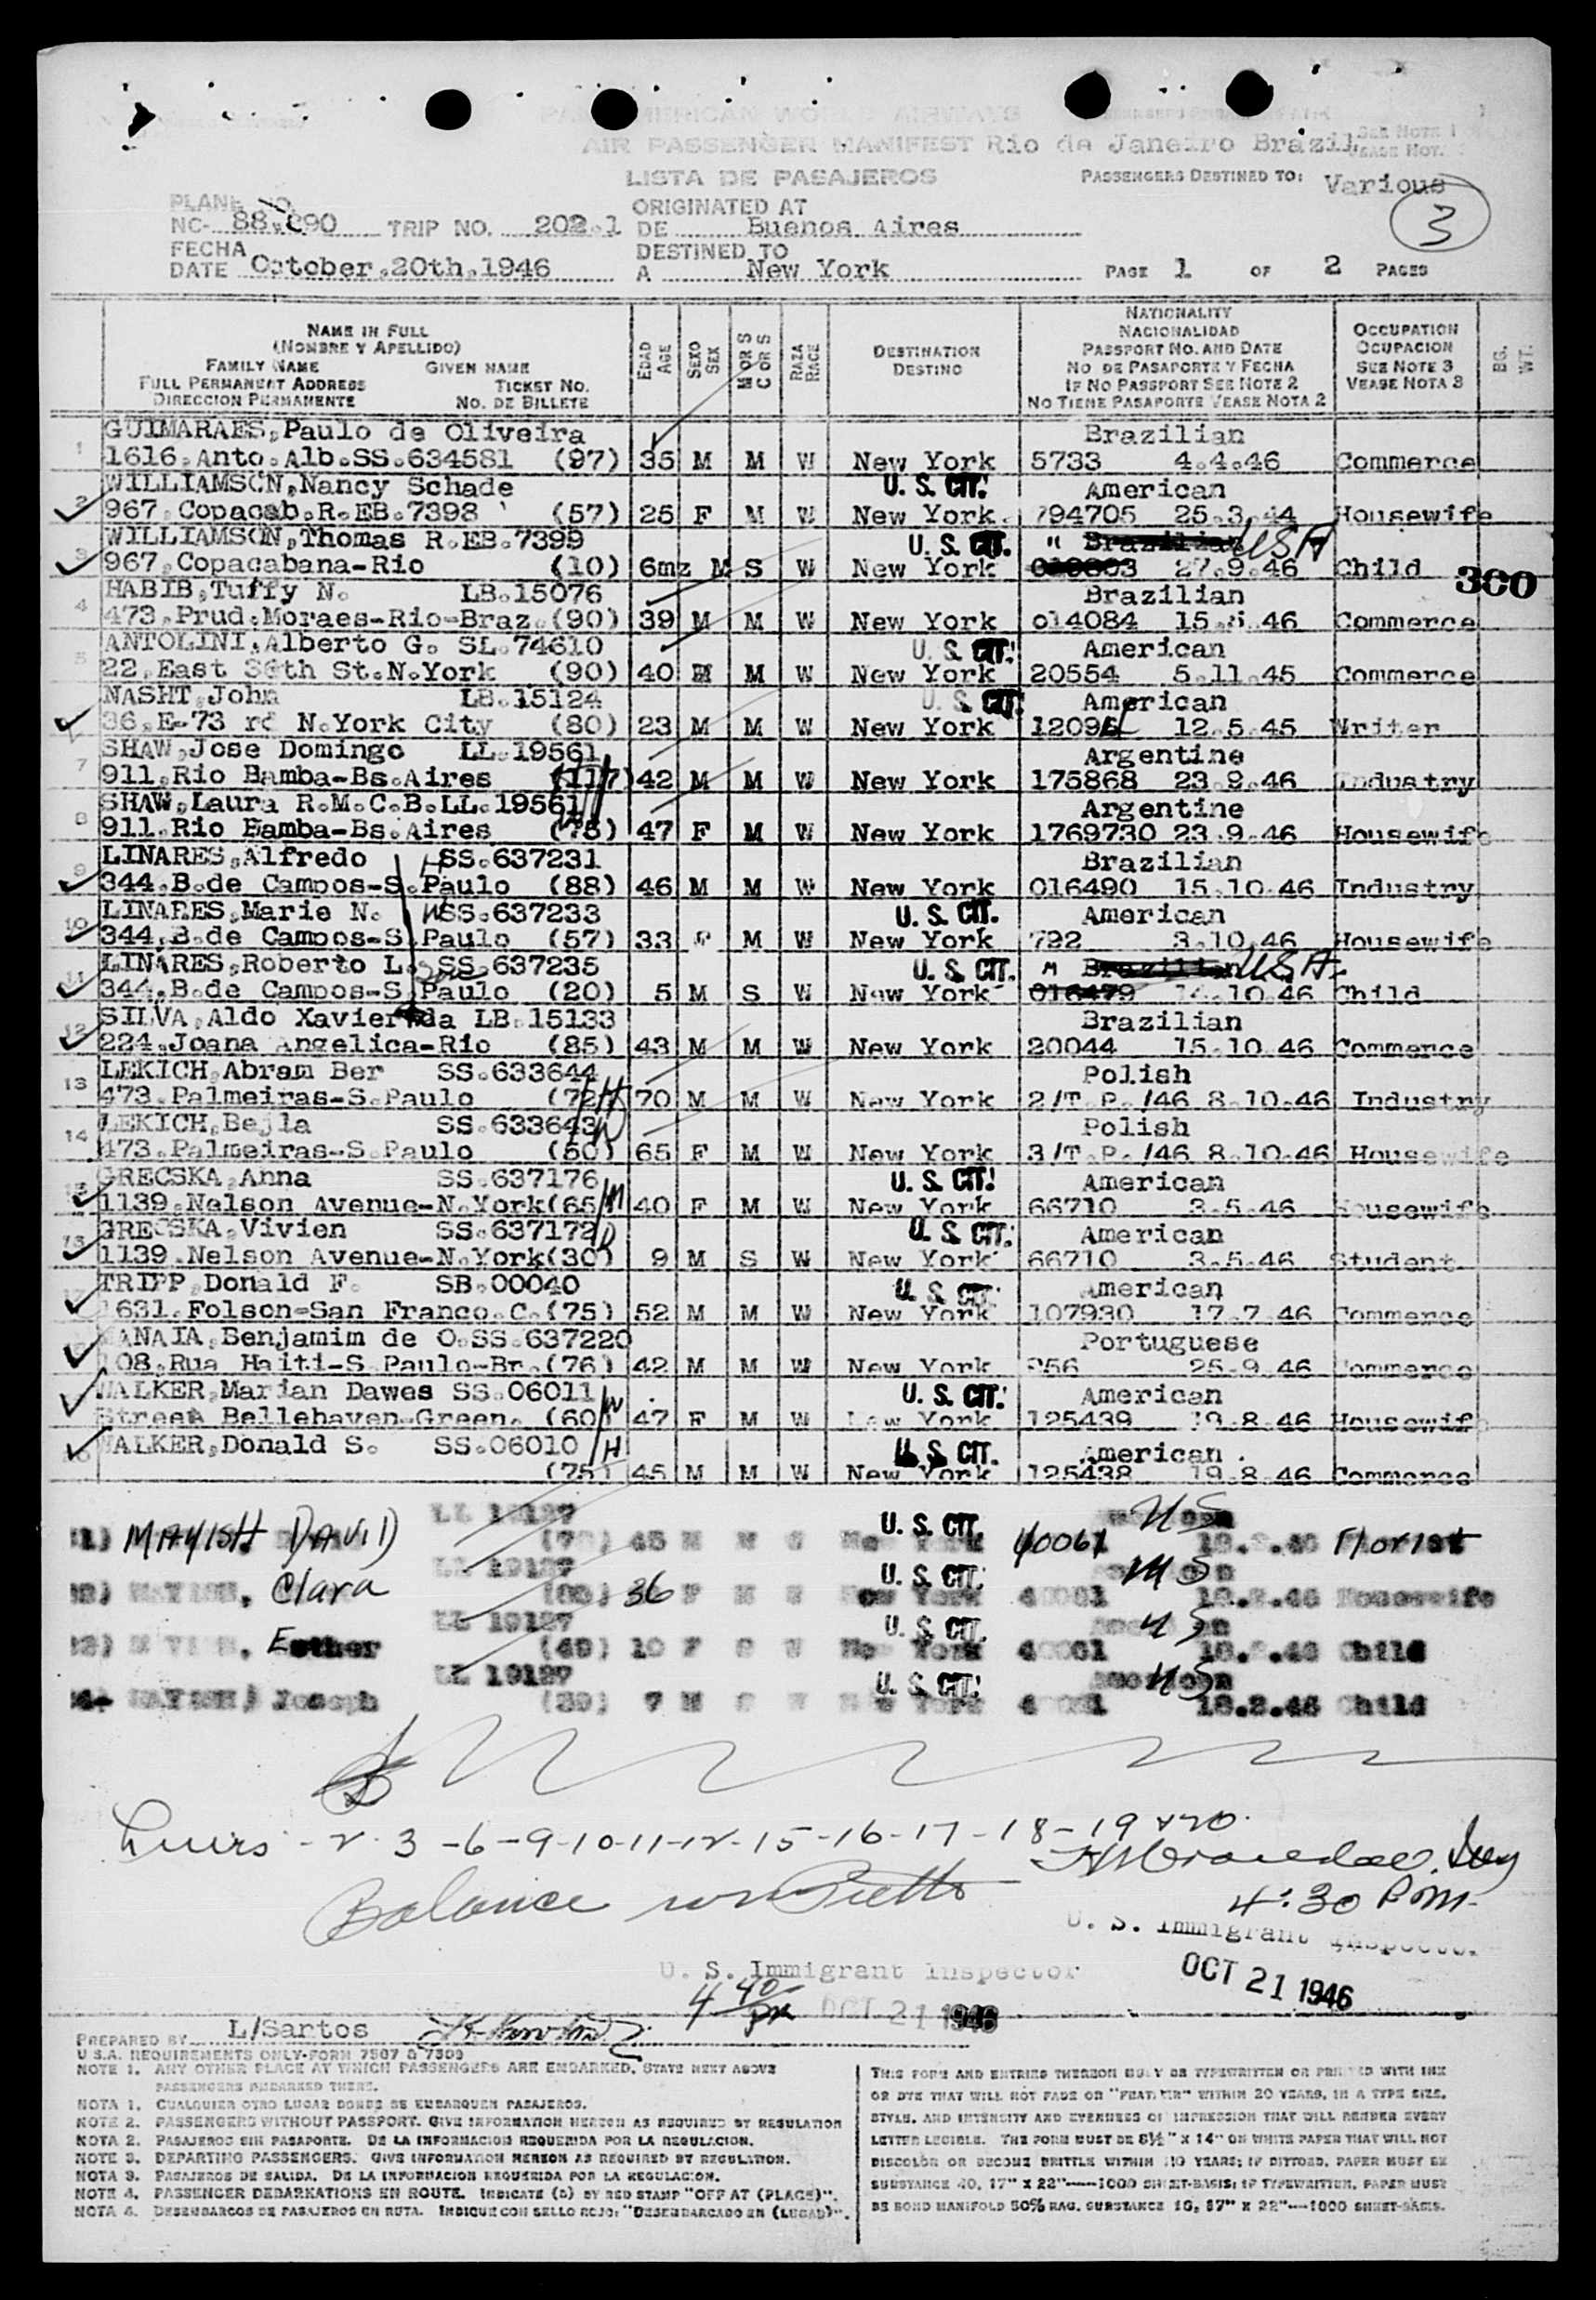 PAN AMERICAN WORLD AIRWAYS
AIR PASSENGER MANIFEST Rio de Janeiro Brazil
SEE NOTE 1
LISTA DE PASAJEROS
PASSENGERS DESTINED TO: Various
3
PLANE NO.
ORIGINATED AT
TRIP NO. 202.1 DE Buenos Aires
FECHA
DESTINED TO
DATE October.20th.1946 A New York PAGE 1 OF 2 PAGES
NAME IN FULL
(NOMBRE Y APELLIDO)
FAMILY NAME GIVEN NAME
FULL PERMANENT ADDRESS TICKET NO.
DIRECCION PERMANENTE NO. DE BILLETE
EDAD AGE
SEXO SEX
M OR S C OR S
RAZA RACE
DESTINATION DESTINO
NATIONALITY
NACIONALIDAD
PASSPORT NO. AND DATE
NO DE PASAPORTE Y FECHA
IF NO PASSPORT SEE NOTE 2
NO TIENE PASAPORTE VEASE NOTA 2
OCCUPATION
OCUPACION
SEE NOTE 3
VEASE NOTA 3
BG. WT.
1 GUIMARAES,Paulo de Oliveira Brazilian
1616.Anto.Alb.SS.634581 (97) 35 M M W New York 5733 4.4.46 Commerce
2 WILLIAMSON,Nancy Schade U. S. CIT. American
967.Copacab.R.EB.7398 (57) 25 F M W New York 794705 25.3.44 Housewife
3 WILLIAMSON,Thomas R.EB.7399 U. S. CIT. " Brazilian USA
967.Copacabana-Rio (10) 6mz M S W New York 27.9.46 Child 300
4 HABIB,Tuffy N. LB.15076 Brazilian
473.Prud.Moraes-Rio-Braz.(90) 39 M M W New York 014084 46 Commerce
5 ANTOLINI,Alberto G. SL.74610 U. S. CIT. American
22.East St.N.York (90) 40 M M W New York 20554 5.11.45 Commerce
NASHT,John LB.15124 U. S. CIT. American
36.E-73 rd N.York City (80) 23 M M W New York 12.5.45 Writer
7 SHAW,Jose Domingo LL.19561 Argentine
911.Rio Bamba-Bs.Aires (117) 42 M M W New York 175868 23.9.46 Industry
8 SHAW,Laura R.M.C.B.LL.19561 Argentine
911.Rio Bamba-Bs.Aires (75) 47 F M W New York 1769730 23.9.46 Housewife
9 LINARES,Alfredo H SS.637231 Brazilian
344.B.de Campos-S.Paulo (88) 46 M M W New York 016490 15.10.46 Industry
10 LINARES,Marie N. W SS.637233 U. S. CIT. American
344.B.de Campos-S.Paulo (57) 33 F M W New York 792 3.10.46 Housewife
11 LINARES,Roberto L. Son SS.637235 U. S. CIT. " Brazilian USA.
344.B.de Campos-S.Paulo (20) 5 M S W New York 016479 14.10.46 Child
12 SILVA,Aldo Xavier da LB.15133 Brazilian
224.Joana Angelica-Rio (85) 43 M M W New York 20044 15.10.46 Commerce
13 LEKICH,Abram Ber SS.633644 Polish
473.Palmeiras-S.Paulo (72) H 70 M M W New York 2/T.P./46 8.10.46 Industry
14 LEKICH,Bejla SS.633643 Polish
473.Palmeiras-S.Paulo (50) W 65 F M W New York 3/T.P./46 8.10.46 Housewife
15 GRECSKA,Anna SS.637176 U. S. CIT. American
1139.Nelson Avenue-N.York(65) M 40 F M W New York 66710 3.5.46 Housewife
GRECSKA,Vivien SS.637172 U. S. CIT. American
1139.Nelson Avenue-N.York(30) D 9 M S W New York 66710 3.5.46 Student
TRIPP,Donald F. SB.00040 U. S. CIT. American
1631.Folson-San Franco.C.(75) 52 M M W New York 107930 17.7.46 Commerce
Benjamim de O.SS.637220 Portuguese
108.Rua Haiti-S.Paulo-Br.(76) 42 M M W New York 25.9.46 Commerce
WALKER,Marian Dawes SS.06011 W U. S. CIT. American
Street Bellehaven-Green. (60) 47 F M W New York 125439 19.8.46 Housewife
WALKER,Donald S. SS.06010 H U. S. CIT. American
(75) 45 M M W New York 125438 19.8.46 Commerce
LL 19127 U. S. CIT. US
MAYISH DAVID 45 M M W 40061 Florist
LL 19127 U. S. CIT. US
Clara 36 F New York Housewife
LL 19127 U. S. CIT. US
Esther (49) 10 F New York Child
LL 19127 U. S. CIT. US
Joseph (39) 7 M 18.2.46 Child
- 2 - 3 - 6 - 9 - 10 - 11 - 12 - 15 - 16 - 17 - 18 - 19 & 20.
Balance
4:30 P.M.
U. S. Immigrant Inspector
OCT 21 1946
U. S. Immigrant Inspector
4 40 PM OCT 21 1946
PREPARED BY L/Sartos
U S.A. REQUIREMENTS ONLY-FORM 7507 & 7509
NOTE 1. ANY OTHER PLACE AT WHICH PASSENGERS ARE EMBARKED, STATE NEXT ABOVE
PASSENGERS EMBARKED THERE.
NOTA 1. CUALQUIER OTRO LUGAR DONDE SE EMBARQUEN PASAJEROS.
NOTE 2. PASSENGERS WITHOUT PASSPORT. GIVE INFORMATION HEREON AS REQUIRED BY REGULATION
NOTA 2. PASAJEROS SIN PASAPORTE. DE LA INFORMACION REQUERIDA POR LA REGULACION.
NOTE 3. DEPARTING PASSENGERS. GIVE INFORMATION HEREON AS REQUIRED BY REGULATION.
NOTA 3. PASAJEROS DE SALIDA. DE LA INFORMACION REQUERIDA POR LA REGULACION.
NOTE 4. PASSENGER DEBARKATIONS EN ROUTE. INDICATE (D) BY RED STAMP "OFF AT (PLACE)".
NOTA 4. DESEMBARCOS DE PASAJEROS EN RUTA. INDIQUE CON SELLO ROJO: "DESEMBARCADO EN (LUGAR)".
THIS FORM AND ENTRIES THEREON MUST BE TYPEWRITTEN OR PRINTED WITH INK
OR DYE THAT WILL NOT FADE OR "FEATHER" WITHIN 20 YEARS, IN A TYPE SIZE,
STYLE, AND INTENSITY AND EVENNESS OF IMPRESSION THAT WILL RENDER EVERY
LETTER LEGIBLE. THE FORM MUST BE 8½" X 14" ON WHITE PAPER THAT WILL NOT
DISCOLOR OR BECOME BRITTLE WITHIN 20 YEARS; IF DITTOED, PAPER MUST BE
SUBSTANCE 40, 17" X 22"—1000 SHEET-BASIS; IF TYPEWRITTEN, PAPER MUST
BE BOND MANIFOLD 50% RAG. SUBSTANCE 16, 17" X 22"—1000 SHEET-BASIS.